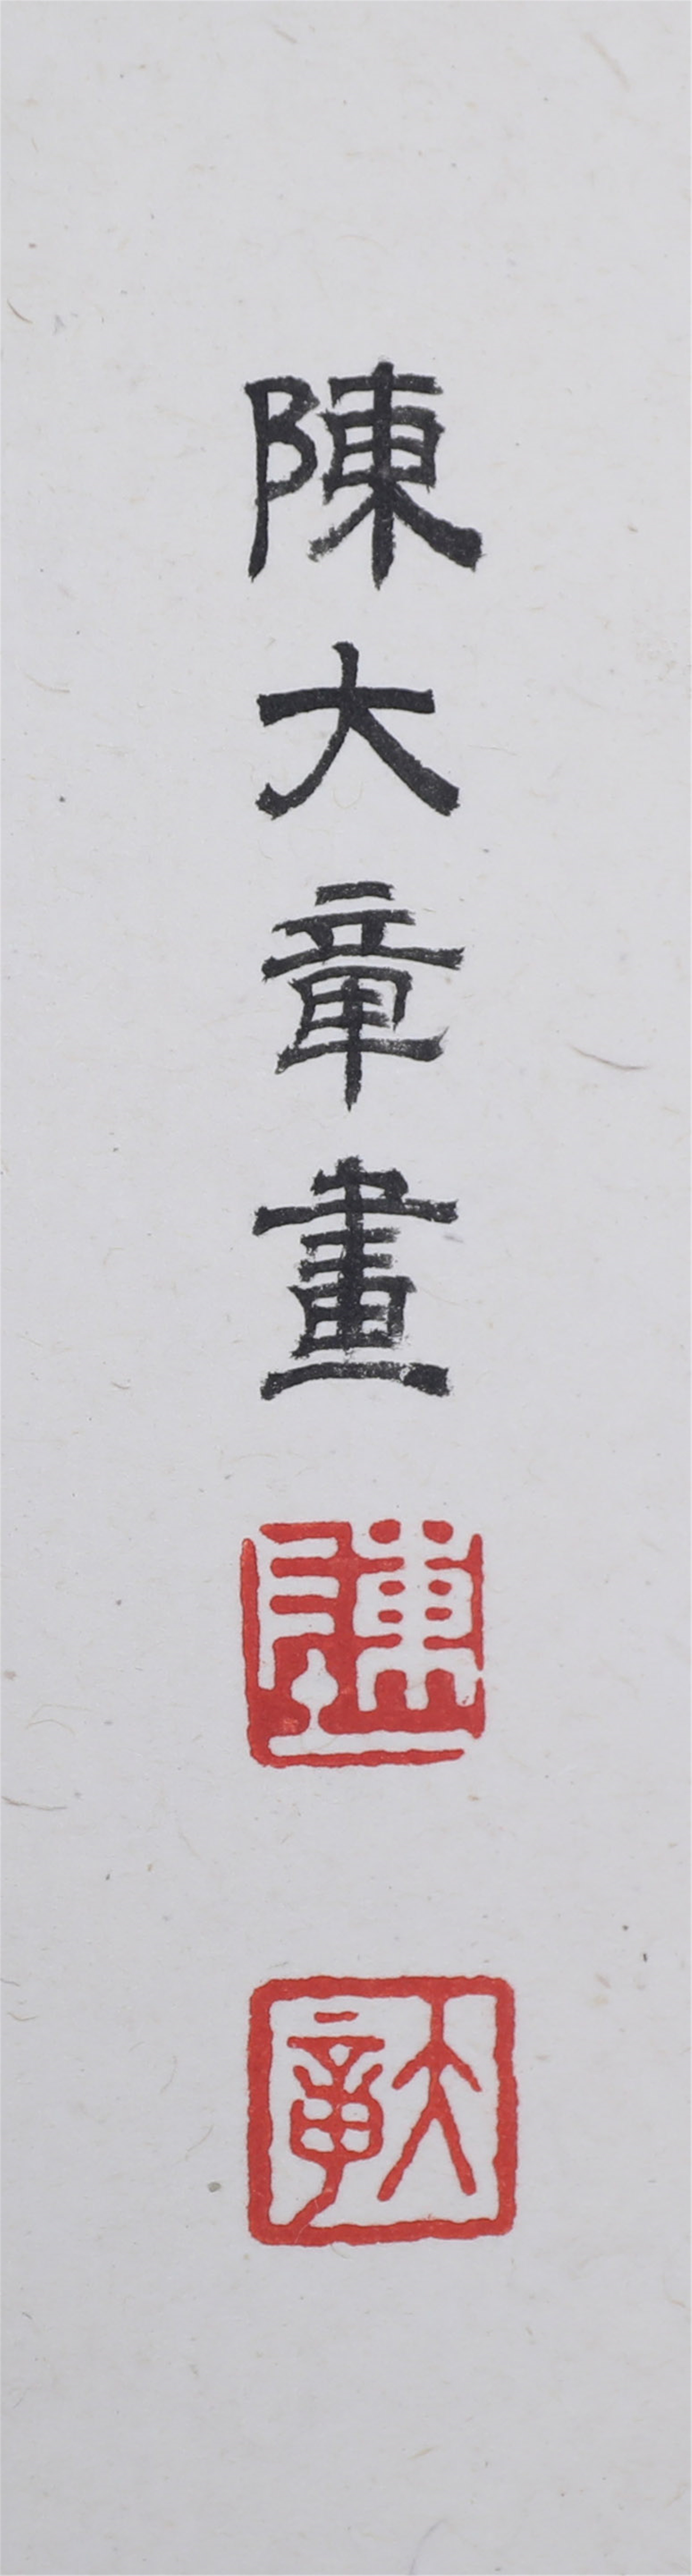 陳大章畫
陳
大章